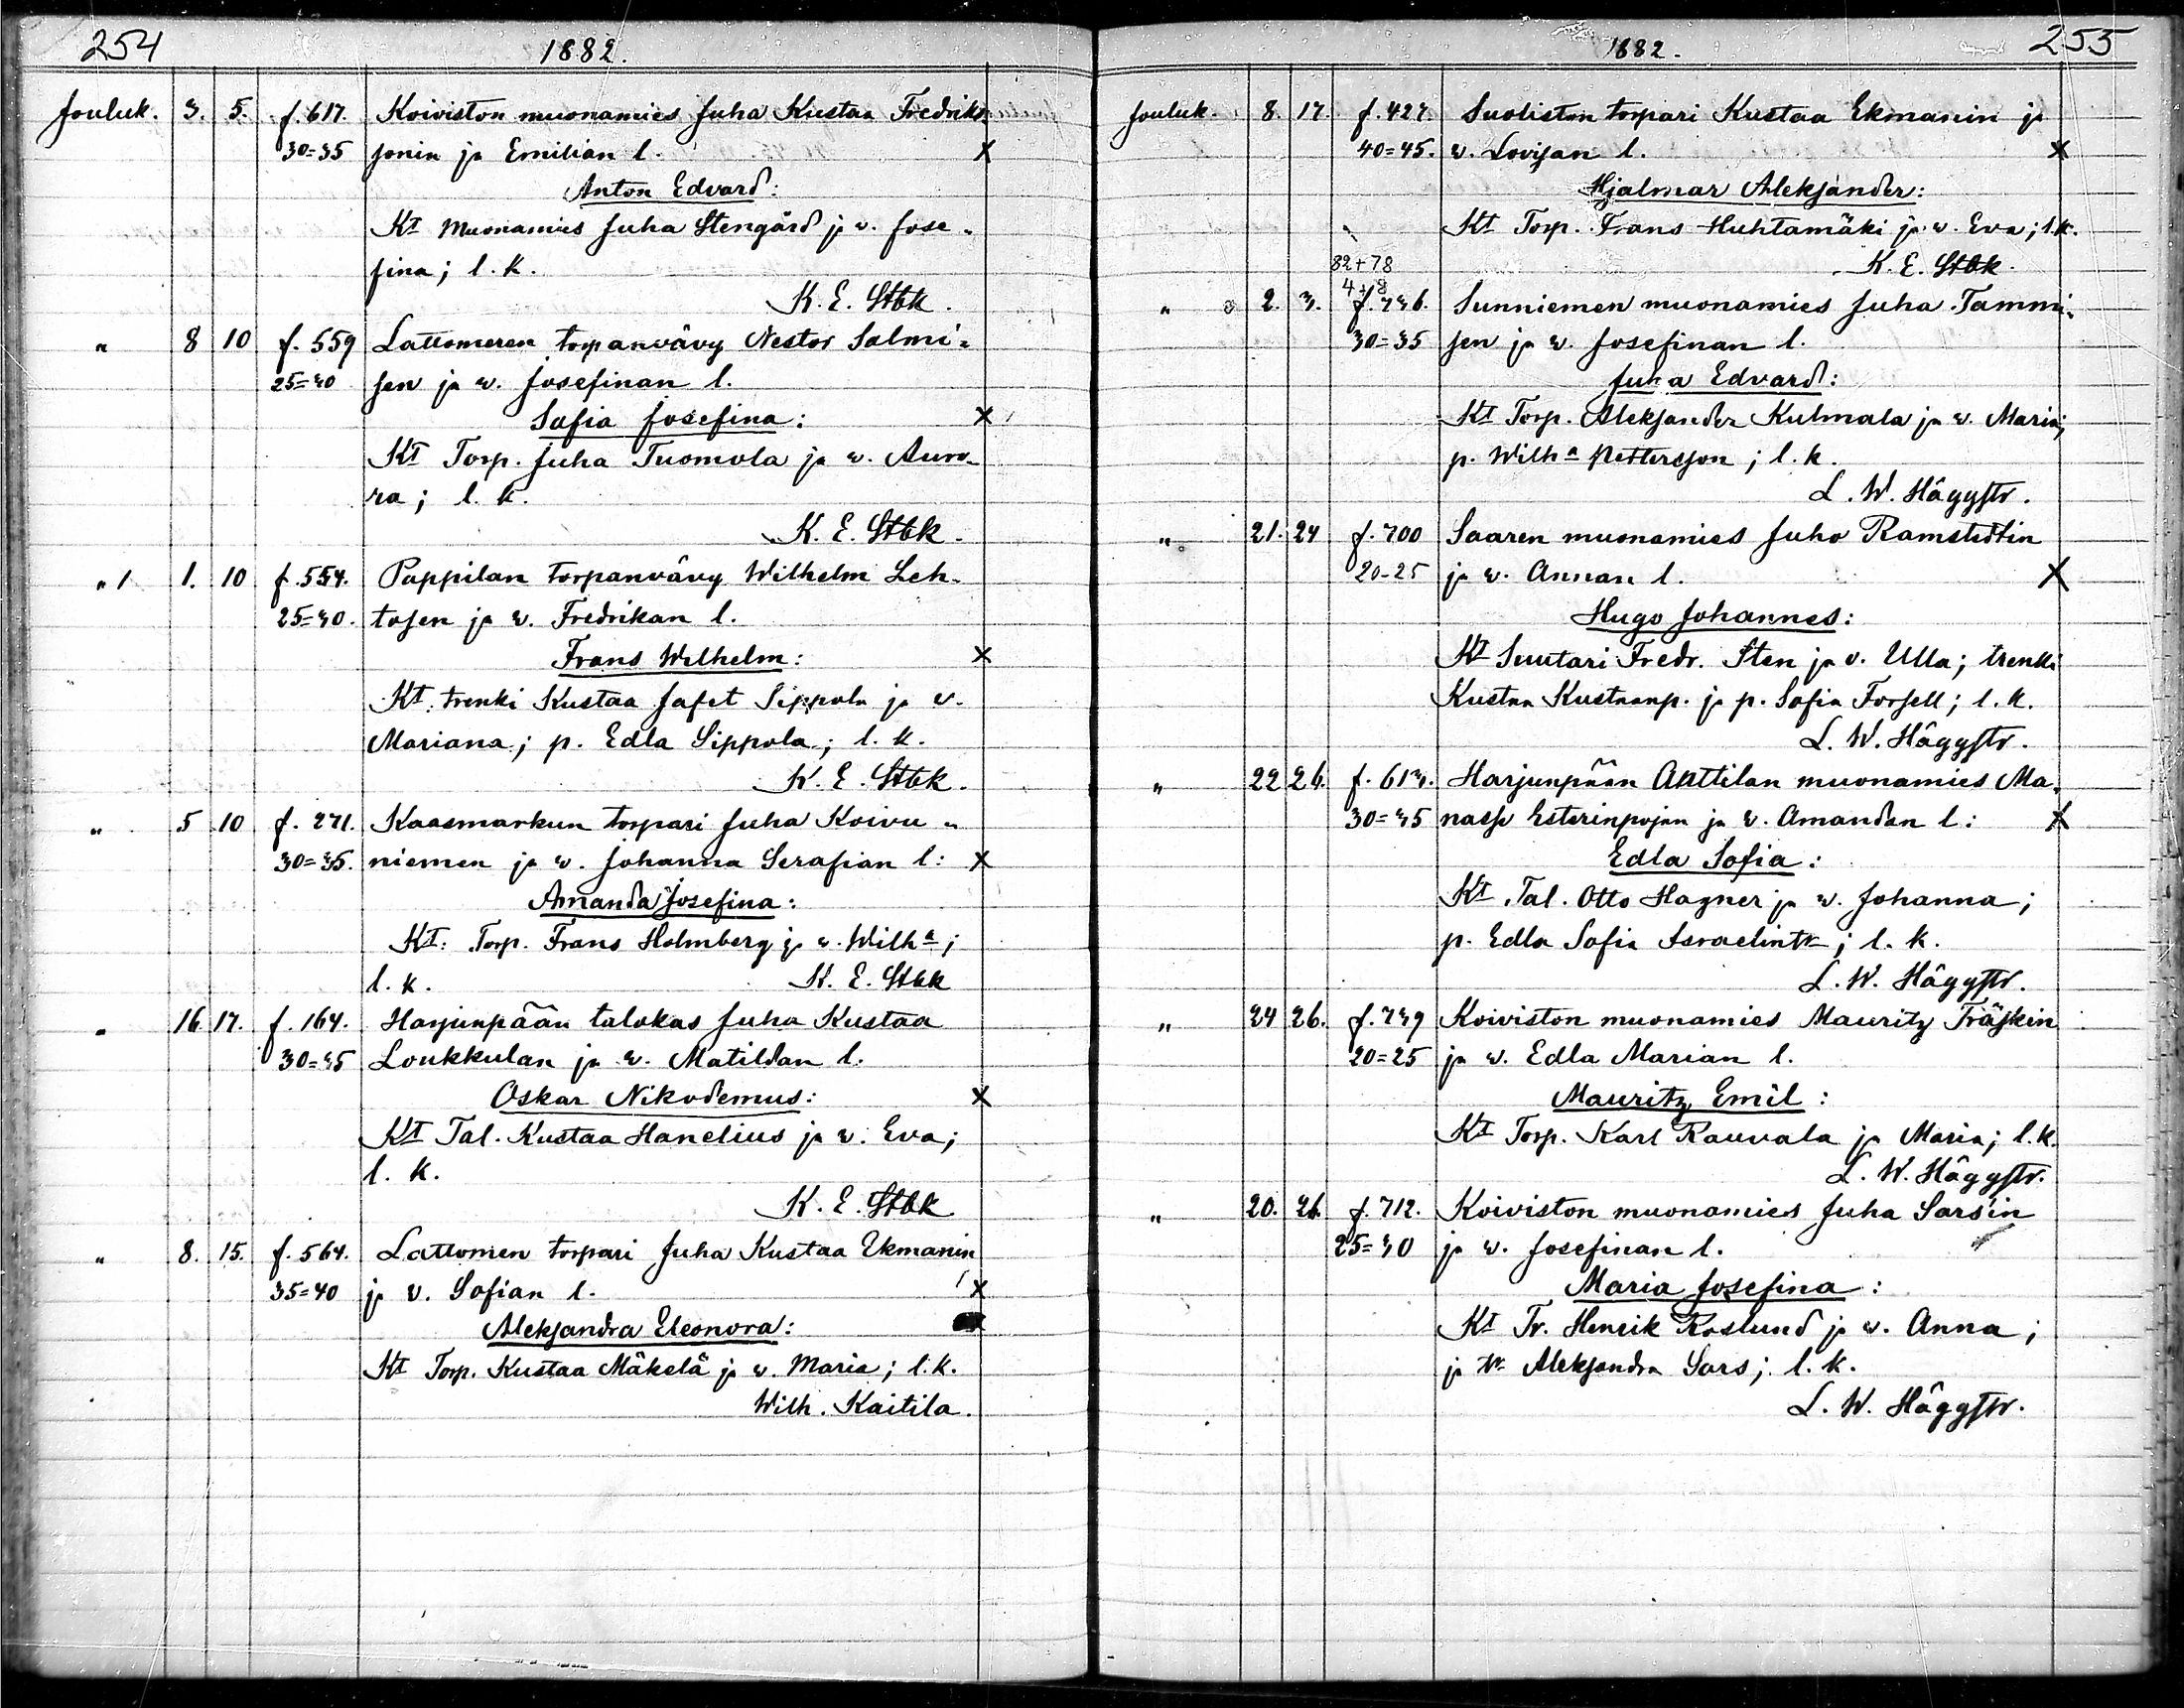 254
1882.
Jouluk. 3. 5. f. 617. Koiviston muonamies Juha Kustaa Fredriks-
30=35 sonin ja Emilian l. X
Anton Edvard:
Kt Muonamies Juha Stengård ja v. Jose-
fina; l. k.
K. E. Stbk.
" 8 10 f. 559 Lattomeren torpanvävy Nestor Salmi-
25=30 sen ja v. Josefinan l.
Sofia Josefina: X
Kt Torp. Juha Tuomola ja v. Auro-
ra; l. k.
K. E. Stbk.
" 1 1. 10 f. 554. Pappilan torpanvävy Wilhelm Leh-
25=30. tosen ja v. Fredrikan l.
Frans Wilhelm: X
Kt. trenki Kustaa Jafet Sippola ja v.
Mariana; p. Edla Sippola; l. k.
K. E. Stbk.
" 5 10 f. 271. Kaasmarkun torpari Juha Koivu-
30=35. niemen ja v. Johanna Serafian l: X
Amanda Josefina:
Kt: Torp. Frans Holmberg ja v. Wilha;
l. k. K. E. Stbk
" 16 17. f. 164. Harjunpään talokas Juha Kustaa
30=35 Loukkulan ja v. Matildan l.
Oskar Nikodemus: X
Kt Tal. Kustaa Hanelius ja v. Eva;
l. k.
K. E. Stbk
" 8. 15. f. 564. Lattomen torpari Juha Kustaa Ekmanin
35=40 ja v. Sofian l. X
Aleksandra Eleonora:
Kt Torp. Kustaa Mäkelä ja v. Maria; l. k.
Wilh. Kaitila.
1882.
255
Jouluk. 8. 17. f. 427. Suoliston torpari Kustaa Ekmanin ja
40=45. v. Lovisan l. X
Hjalmar Aleksander:
Kt Torp. Frans Huhtamäki ja v. Eva; l. k.
82+78 K. E. Stbk.
4+8
" 2. 3. f. 736. Sunniemen muonamies Juha Tammi-
30=35 sen ja v. Josefinan l.
Juha Edvard:
Kt Torp. Aleksander Kulmala ja v. Maria;
p. Wilha Pettersson; l. k.
L. W. Häggstr.
" 21. 24 f. 700 Saaren muonamies Juho Ramstedtin
20-25 ja v. Annan l. X
Hugo Johannes:
Kt Suutari Fredr. Sten ja v. Ulla; trenki
Kustaa Kustaanp. ja p. Sofia Forsell; l. k.
L. W. Häggstr.
" 22 26. f. 613. Harjunpään Anttilan muonamies Ma-
30=35 nasse Esterinpojan ja v. Amandan l: X
Edla Sofia:
Kt. Tal. Otto Hagner ja v. Johanna;
p. Edla Sofia Israelintr; l. k.
L. W. Häggstr.
" 24 26. f. 739 Koiviston muonamies Mauritz Träskin
20=25 ja v. Edla Marian l.
Mauritz Emil:
Kt Torp. Karl Rauvala ja Maria; l. k.
L. W. Häggstr.
" 20. 26. f. 712. Koiviston muonamies Juha Sarsin
25=30 ja v. Josefinan l.
Maria Josefina:
Kt Tr. Henrik Roslund ja v. Anna;
ja tr Aleksandra Sars; l. k.
L. W. Häggstr.